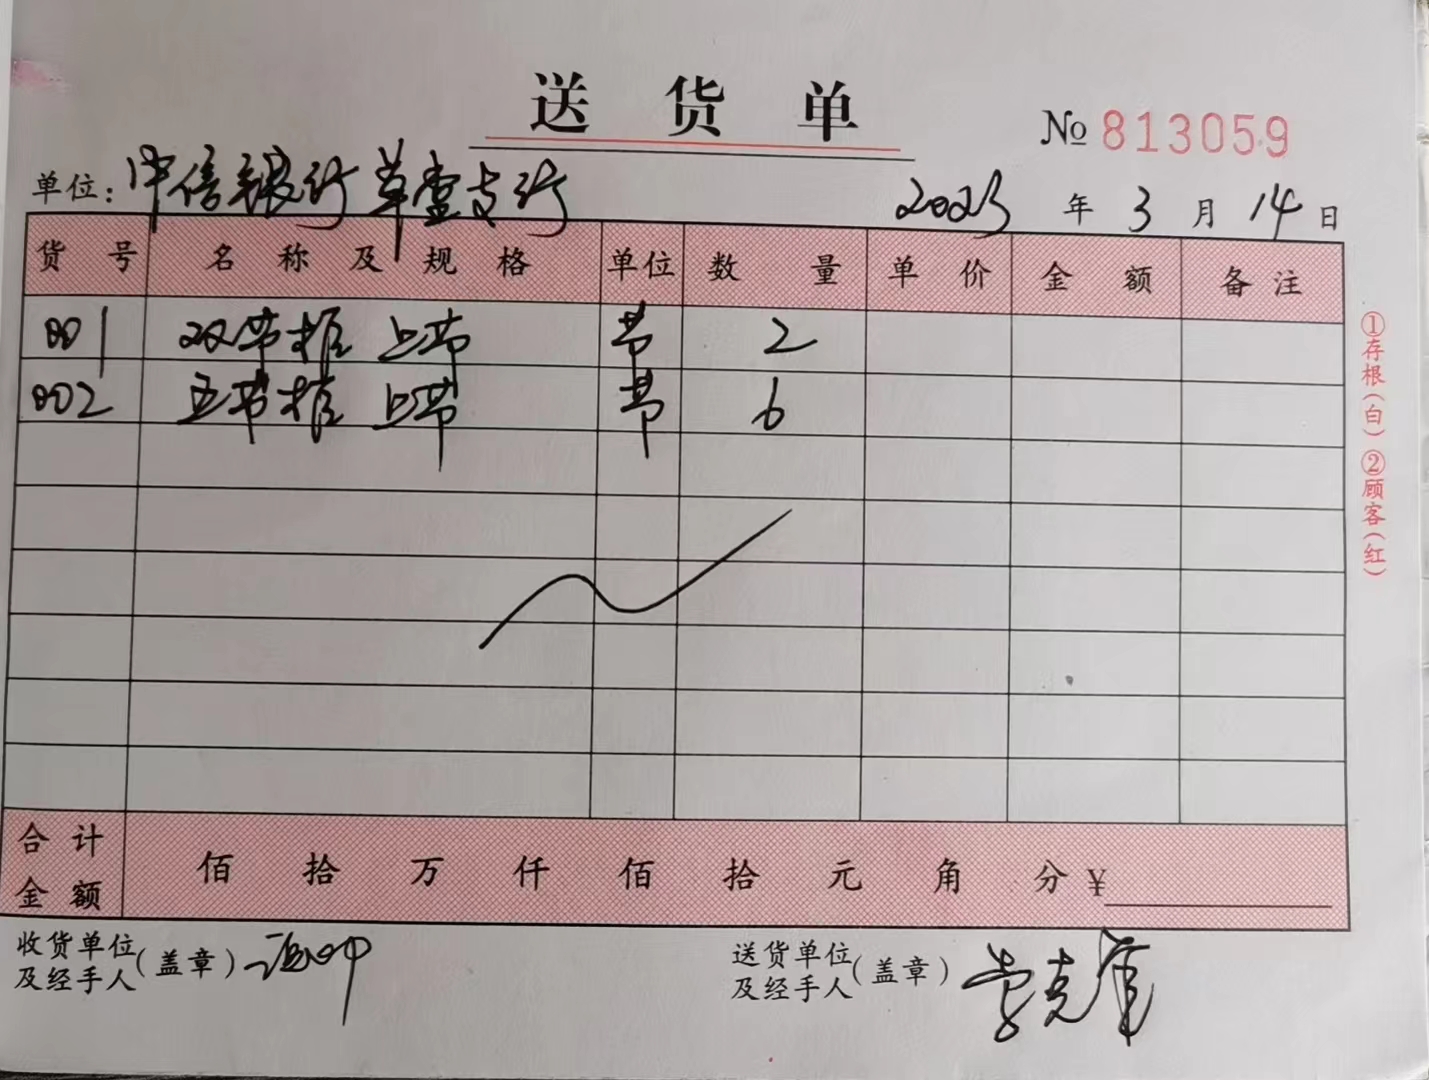 送货单
№ 813059
单位: 中信银行草堂支行 2023 年 3 月 14 日
货号 名称及规格 单位 数量 单价 金额 备注
001 双节柜 上节 节 2
002 五节柜 上节 节 6
①存根(白) ②顾客(红)
合计金额 佰 拾 万 仟 佰 拾 元 角 分 ¥
收货单位及经手人(盖章) 送货单位及经手人(盖章)